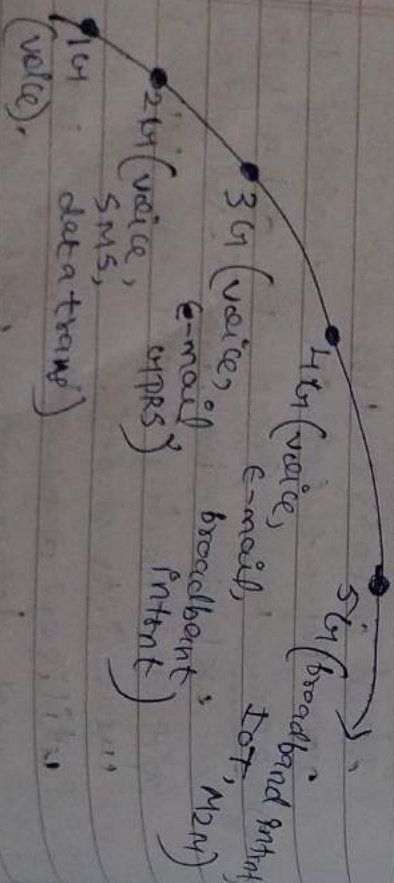 1G
(voice).
2G (voice,
SMS,
data trans)
3G (voice,
e-mail
GPRS)
4G (voice,
E-mail,
broadbant
intrnt)
5G (broadband intrnt,
IoT,
M2M)